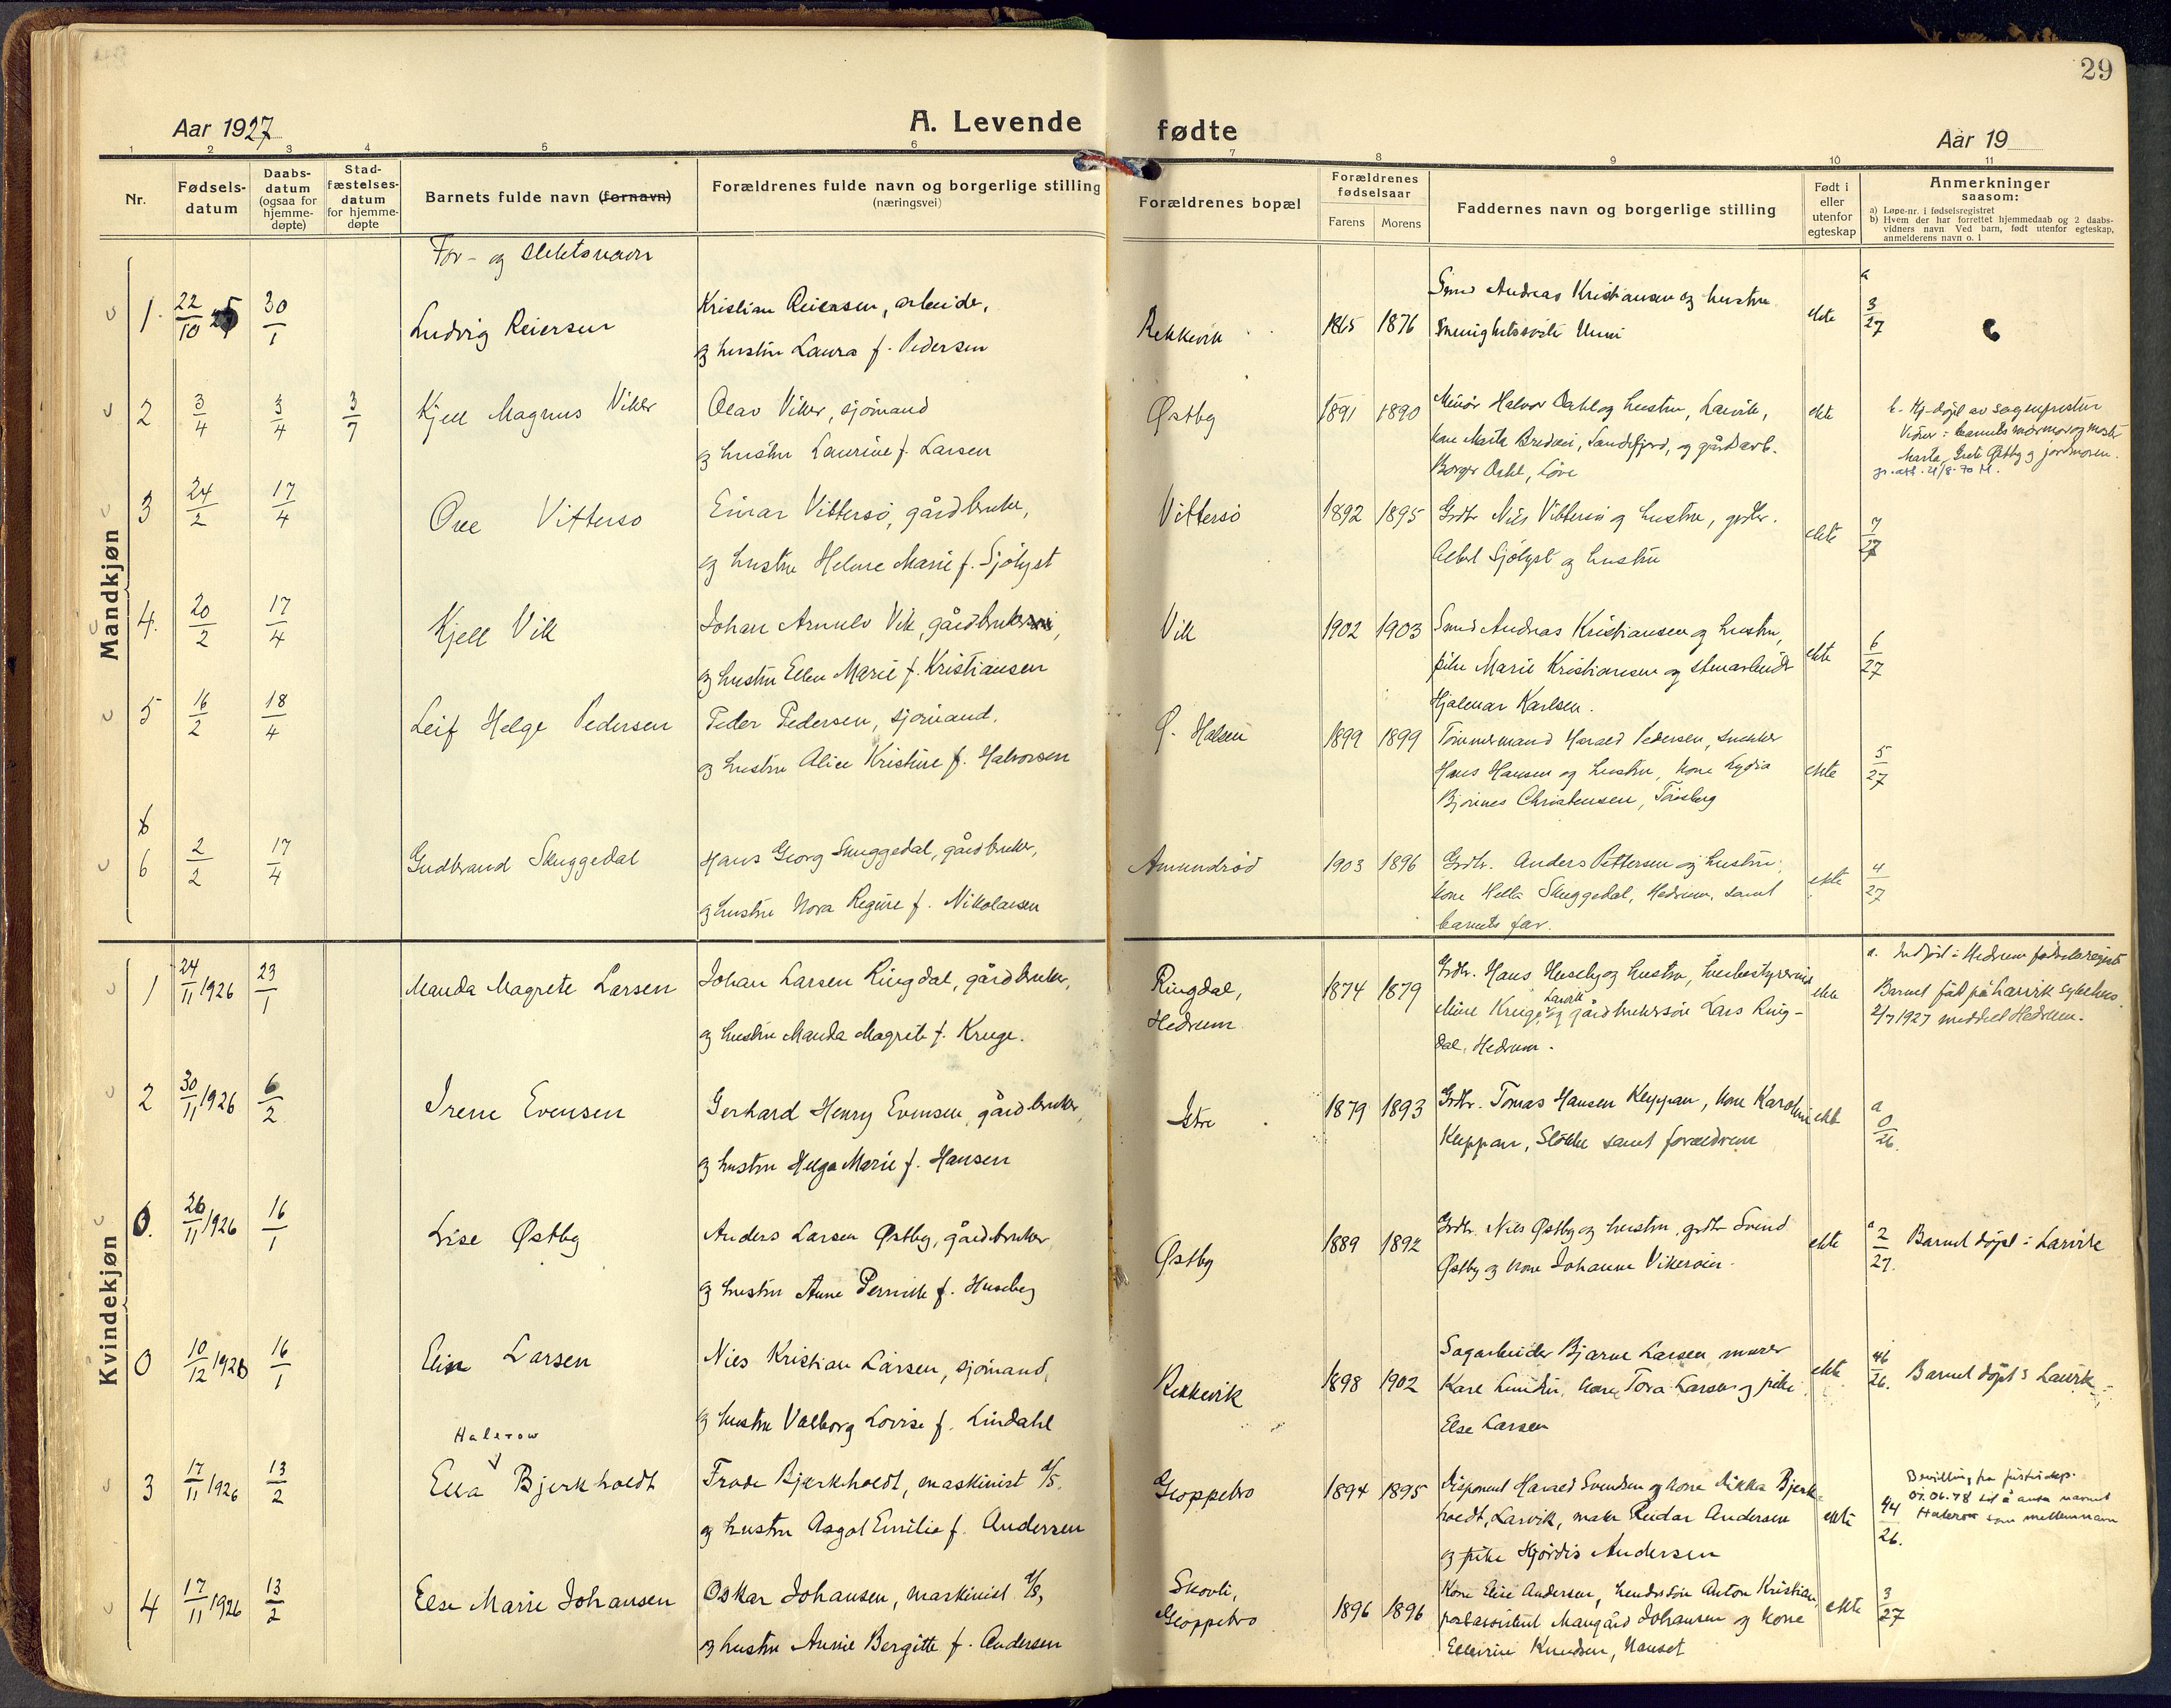 29
Aar 1927
A. Levende
fødte
Aar 19
1 2 3 4 5 6 7 8 9 10 11
Nr.
Fødsels-
datum
Daabs-
datum
(ogsaa for
hjemme-
døpte)
Stad-
fæstelses-
datum
for hjemme-
døpte
Barnets fulde navn (fornavn)
Forældrenes fulde navn og borgerlige stilling
(næringsvei)
Forældrenes bopæl
Forældrenes
fødselsaar
Farens Morens
Faddernes navn og borgerlige stilling
Født i
eller
utenfor
egteskap
Anmerkninger
saasom:
a) Løpe-nr. i fødselsregistret
b) Hvem der har forrettet hjemmedaab og 2 daabs-
vidners navn Ved barn, født utenfor egteskap,
anmelderens navn o. l
For- og slektsnavn
Mandkjøn
1. 22/10 30/1
Ludvig Reiersen
Kristian Reiersen, arbeider,
og hustru Laura f. Pedersen
Rekkevik
1865 1876
Smed Andreas Kristiansen og hustru
ekte
a 3/27
2 3/4 3/4 3/7
Kjell Magnus Viker
Olav Viker, sjømand
og hustru Laurine f. Larsen
Østby
1891 1890
Halvor Dahl og hustru, Larvik,
kone Marta, Sandefjord, og gårdarb.
Borger Dahl,
ekte
b. Hj-døpt av sognepresten
Vidner: barnets mormor og moster
Marta Grete Østby og jordmoren.
3 24/2 17/4
Ove Vittersø
Einar Vittersø, gårdbruker,
og hustru Helene Marie f. Sjølyst
Vittersø
1892 1895
Grdbr. Nils Vittersø og hustru, grdbr.
Albert Sjølyst og hustru
ekte
7/27
4. 20/2 17/4
Kjell Vik
Johan Arnulv Vik, gårdbruker,
og hustru Ellen Marie f. Kristiansen
Vik
1902 1903
Smed Andreas Kristiansen og hustru,
pike Marie Kristiansen og stenarbeider
Hjalmar Karlsen.
ekte
6/27
5 16/2 18/4
Leif Helge Pedersen
Peder Pedersen, sjømand.
og hustru Alice Kristine f. Halvorsen
Ø. Halsen
1899 1899
Tømmermand Harald Pedersen, snekker
Hans Hansen og hustru, kone Lydia
Bjørnes Christensen, Tønsberg
ekte
5/27
6
6 2/2 17/4
Gudbrand Skuggedal
Hans Georg Skuggedal, gårdbruker,
og hustru Nora Regine f. Nikolaisen
Amundrød
1903 1896
Grdbr. Anders Pettersen og hustru,
kone Skuggedal, Hedrum, samt
barnets far.
ekte
4/27
Kvindekjøn
1 24/11 1926 23/1
Manda Magrete Larsen
Johan Larsen Ringdal, gårdbruker,
og hustru Manda Magrete f. Kruge.
Ringdal,
Hedrum
1874 1879
Grdbr. Hans Huseby og hustru, husbestyrerinde
Mine Kruge, Larvik og gårdbrukersøn Lars Ring-
dal, Hedrum.
ekte
a. Indført i Hedrum fødselsregister
Barnet født på Larvik sykehus.
2/7 1927 meddelt Hedrum.
2 30/11 1926 6/2
Irene Evensen
Gerhard Henry Evensen, gårdbruker,
og hustru Helga Marie f. Hansen
Istre
1879 1893
Grdbr. Tomas Hansen Kleppan, kone Karoline
Kleppan, samt forældrene
ekte
a 0/26.
0. 26/11 1926 16/1
Lise Østby
Anders Larsen Østby, gårdbruker
og hustru Anne Pernille f. Huseby
Østby
1889 1892
Grdbr. Nils Østby og hustru, grdbr Svend
Østby og kone Johanne Vikerøien.
ekte
a 2/27. Barnet døpt i Larvik
0 10/12 1926 16/1
Elin Larsen
Nils Kristian Larsen, sjømand,
og hustru Valborg Lovise f. Lindahl
Rekkevik
1898 1902
Sagarbeider Bjarne Larsen, murer
Kare, kone Tora Larsen og pike
Else Larsen
ekte
46/26. Barnet døpt i Larvik
Halerow
3 17/11 1926 13/2
Ella Bjerkholdt
Frode Bjerkholdt, maskinist d/s.
og hustru Aagot Emilie f. Andersen
Gloppebro
1894 1895
Disponent Harald Svendsen og kone Dikka Bjerk-
holdt, Larvik, maler Reidar Andersen
og pike Hjørdis Andersen
ekte
44/26.
Bevilling fra justisdep.
01.06.78 til å anta navnet
Halerow som mellemnavn
4 17/11 1926 13/2
Else Marie Johansen
Oskar Johansen, maskinist d/s,
og hustru Annie Bergitte f. Andersen
Skovli,
Gloppebro
1896 1896
Kone Elise Andersen, Anton Kristian,
postassistent Johansen og kone
Knudsen, Nanset
ekte
3/27